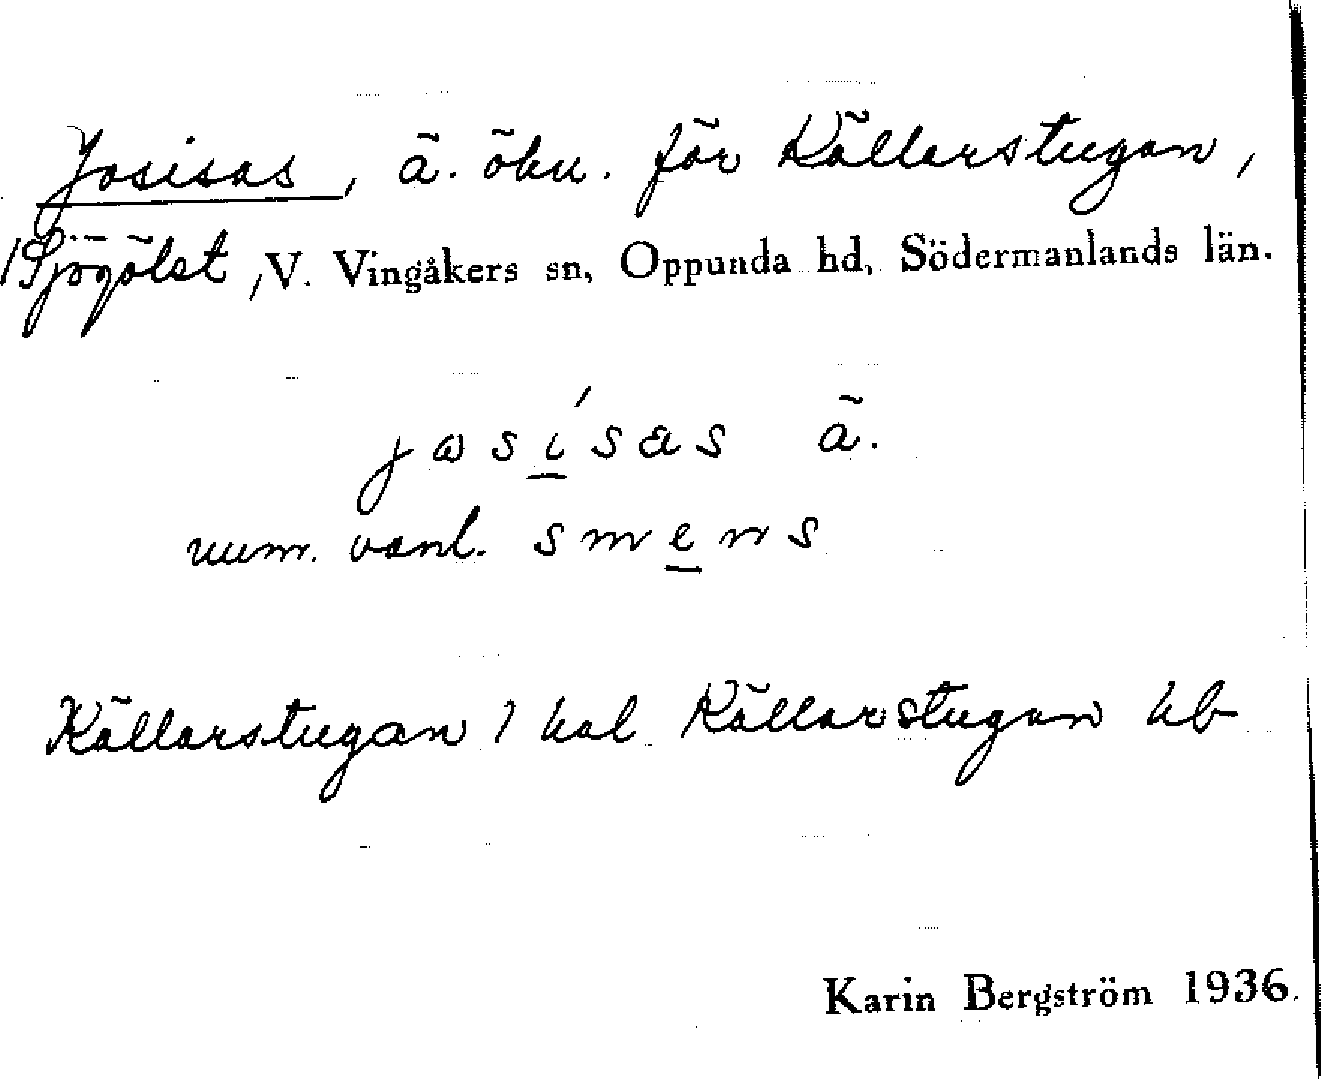 Josisas, ä. öbu. för Källarstugan,
1 Sjögölet, V. Vingåkers sn, Oppunda hd, Södermanlands län.
jasísas ä.
num. vanl. smens
Källarstugan 1 hal Källarstugan hb
Karin Bergström 1936.